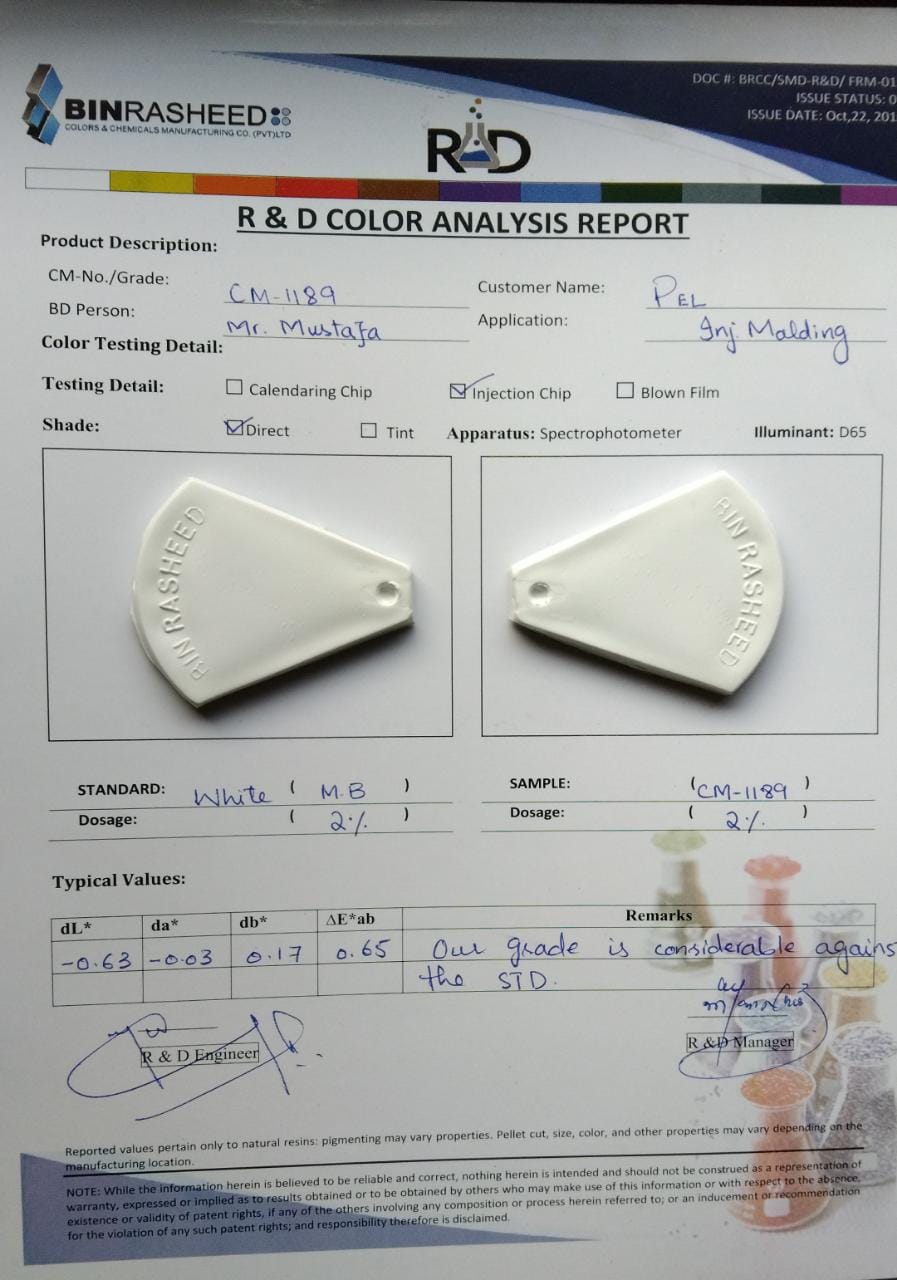 DOC #: BRCC/SMD-R&D/ FRM-01
ISSUE STATUS: 0
ISSUE DATE: Oct,22, 201
BINRASHEED
COLORS & CHEMICALS MANUFACTURING CO. (PVT)LTD
R D
R & D COLOR ANALYSIS REPORT
Product Description:
CM-No./Grade: CM-1189 Customer Name: PEL
BD Person: Mr. Mustafa Application: Inj. Malding
Color Testing Detail:
Testing Detail: Calendaring Chip Injection Chip Blown Film
Shade: Direct Tint Apparatus: Spectrophotometer Illuminant: D65
BIN RASHEED
BIN RASHEED
STANDARD: White ( M.B ) SAMPLE: (CM-1189 )
Dosage: ( 2% ) Dosage: ( 2% )
Typical Values:
dL* da* db* ΔE*ab Remarks
-0.63 -0.03 0.17 0.65 Our grade is considerable agains
the STD.
R & D Engineer R & D Manager
Reported values pertain only to natural resins: pigmenting may vary properties. Pellet cut, size, color, and other properties may vary depending on the
manufacturing location.
NOTE: While the information herein is believed to be reliable and correct, nothing herein is intended and should not be construed as a representation of
warranty, expressed or implied as to results obtained or to be obtained by others who may make use of this information or with respect to the absence,
existence or validity of patent rights, if any of the others involving any composition or process herein referred to; or an inducement or recommendation
for the violation of any such patent rights; and responsibility therefore is disclaimed.